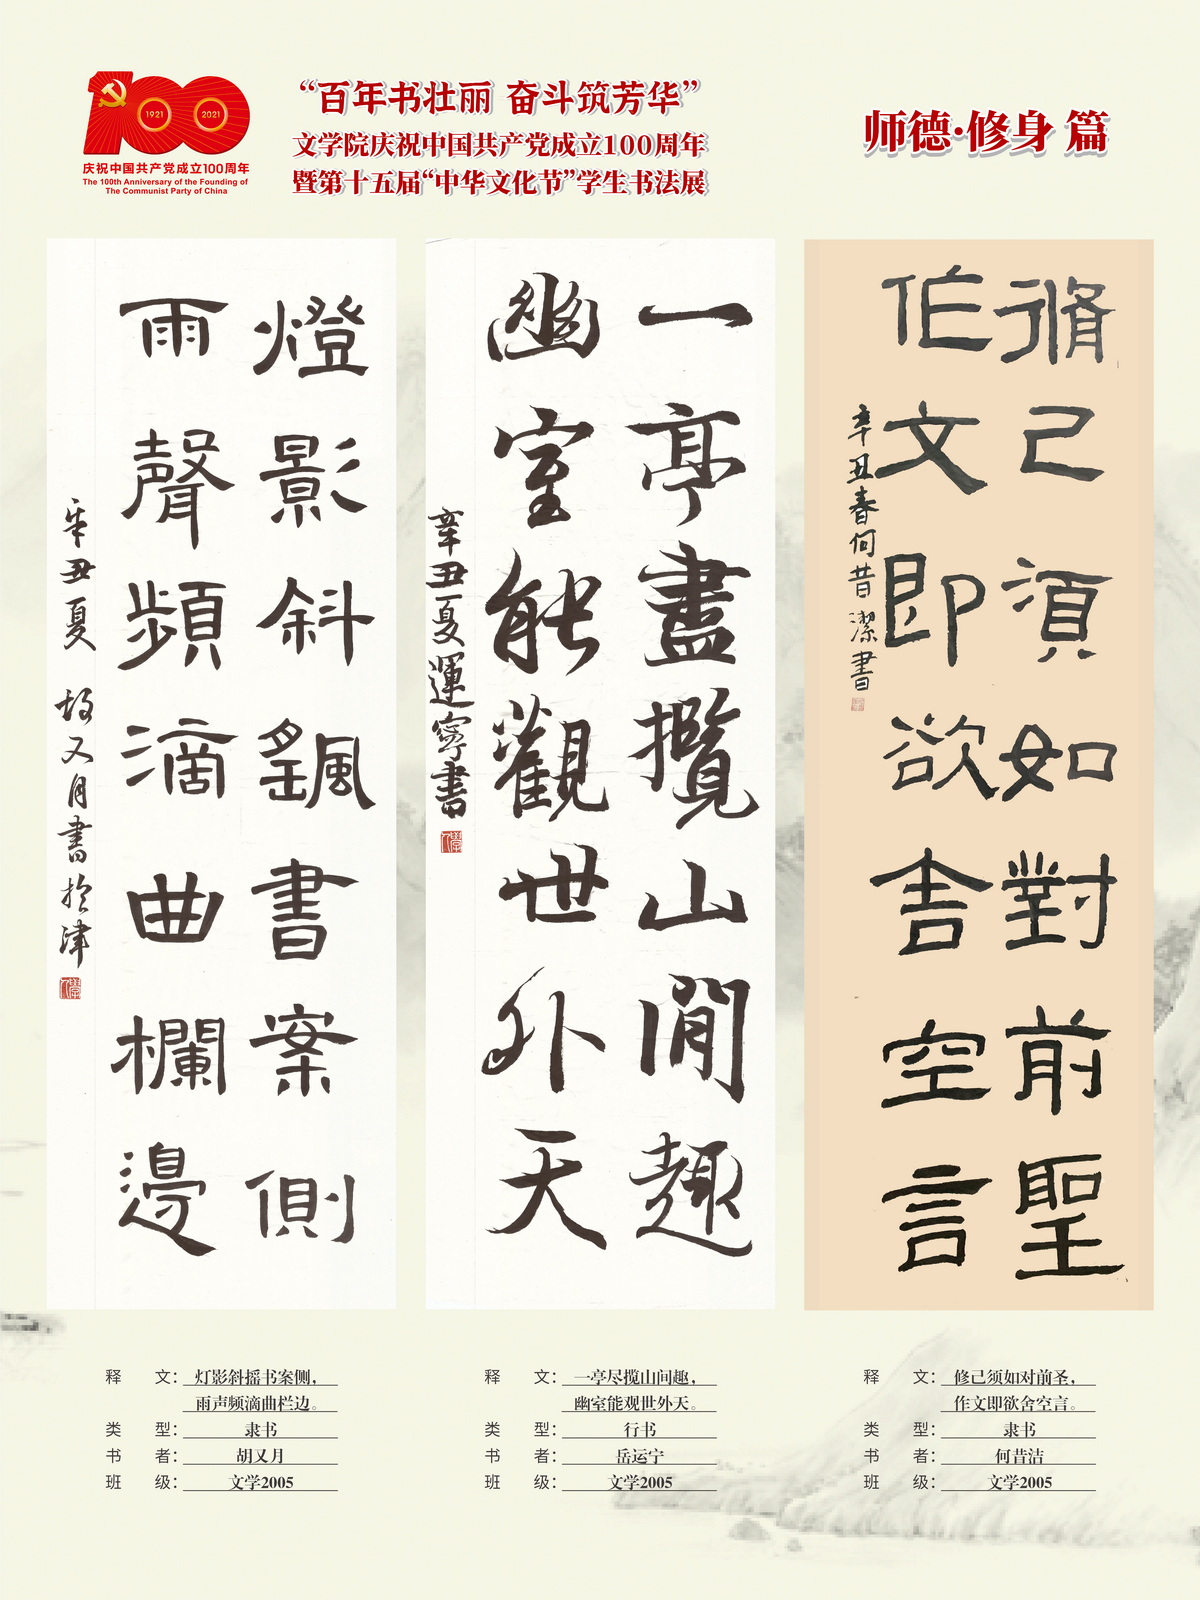 1921
2021
庆祝中国共产党成立100周年
The 100th Anniversary of the Founding of
The Communist Party of China
“百年书壮丽 奋斗筑芳华”
文学院庆祝中国共产党成立100周年
暨第十五届“中华文化节”学生书法展
师德·修身 篇
燈影斜颻書案側
雨聲頻滴曲欄邊
辛丑夏 胡又月書於津
一亭盡攬山閒趣
幽室能觀世外天
辛丑夏運寧書
脩己須如對前聖
作文即欲舍空言
辛丑春何昔潔書
释 文：灯影斜摇书案侧，
雨声频滴曲栏边。
类 型：隶书
书 者：胡又月
班 级：文学2005
释 文：一亭尽揽山间趣，
幽室能观世外天。
类 型：行书
书 者：岳运宁
班 级：文学2005
释 文：修己须如对前圣，
作文即欲舍空言。
类 型：隶书
书 者：何昔洁
班 级：文学2005